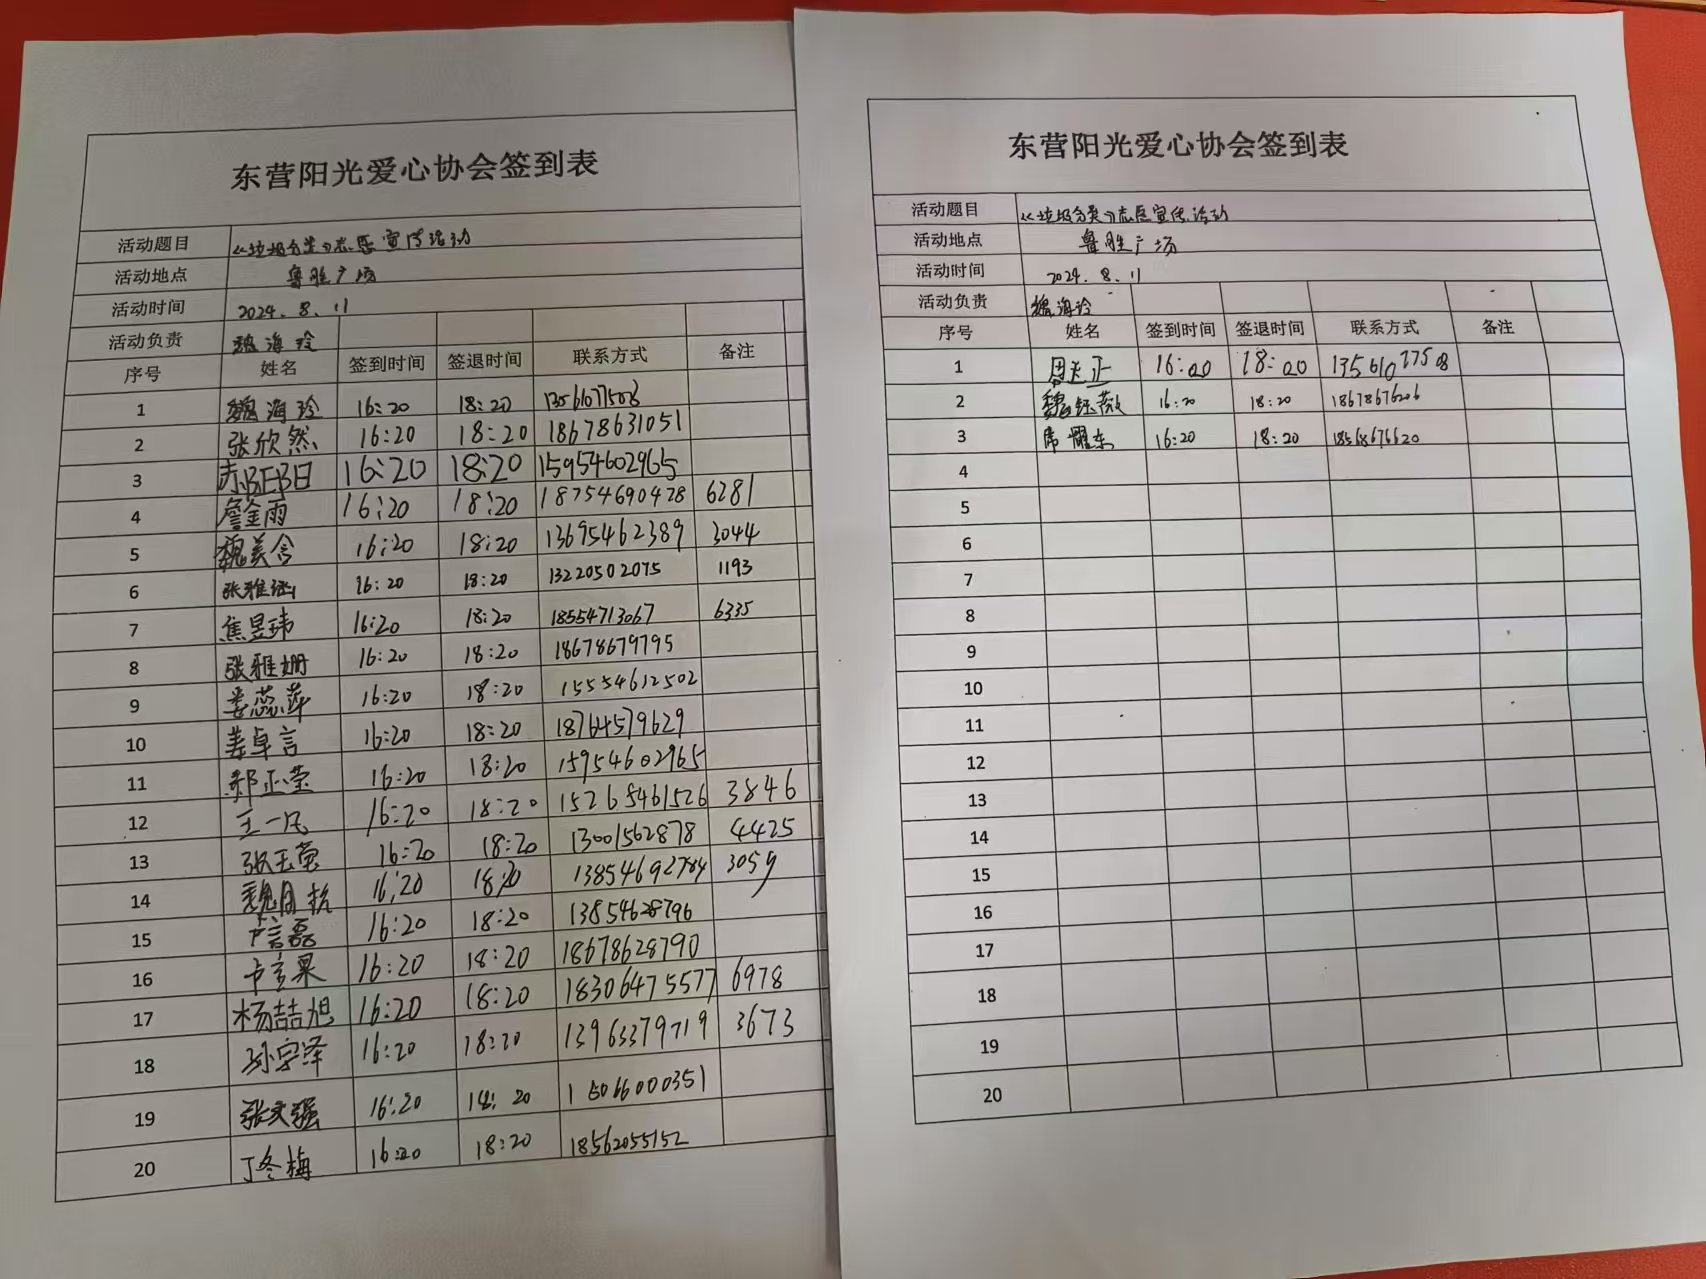 东营阳光爱心协会签到表
活动题目 《垃圾分类》志愿宣传活动
活动地点 鲁胜广场
活动时间 2024.8.11
活动负责 魏海玲
序号 姓名 签到时间 签退时间 联系方式 备注
1 魏海玲 16:20 18:20 13561077508
2 张欣然 16:20 18:20 18678631051
3 16:20 18:20 15954602965
4 詹金雨 16:20 18:20 18754690478 6281
5 魏美含 16:20 18:20 13695462389 3044
6 张雅涵 16:20 18:20 13220502075 1193
7 焦昱玮 16:20 18:20 18554713067 6335
8 张雅姗 16:20 18:20 18678679795
9 娄蕊萍 16:20 18:20 15554612502
10 姜卓言 16:20 18:20 18764579629
11 郝正莹 16:20 18:20 15954602965
12 王一凡 16:20 18:20 15265461526 3846
13 张玉莹 16:20 18:20 13001562878 4425
14 16:20 18:20 13854692784 3059
15 卢言磊 16:20 18:20 13854628796
16 卢言果 16:20 18:20 18678628790
17 杨喆旭 16:20 18:20 18306475577 6978
18 孙宇泽 16:20 18:20 13963379719 3673
19 张文强 16:20 15066000351
20 丁冬梅 16:20 18:20 18562055152
东营阳光爱心协会签到表
活动题目 《垃圾分类》志愿宣传活动
活动地点 鲁胜广场
活动时间 2024.8.11
活动负责 魏海玲
序号 姓名 签到时间 签退时间 联系方式 备注
1 16:00 18:00 13561077508
2 魏钰薇 16:20 18:20 18678676206
3 席耀东 16:20 18:20 18568676620
4
5
6
7
8
9
10
11
12
13
14
15
16
17
18
19
20